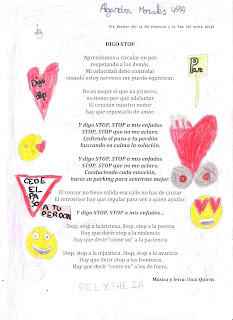 Alejandra Morales 4ºA
Día Escolar por la No Violencia y la Paz (30 enero 2018)
DIGO STOP
Aprendamos a circular en paz
respetando a los demás.
Mi velocidad debo controlar
cuando estoy nervioso me puedo equivocar.
No es mejor el que va primero,
no tienes por qué adelantar
El corazón nuestro motor
hay que repostarlo de amor.
Y digo STOP, STOP a mis enfados
STOP, STOP que no me aclaro.
Cediendo el paso a tu perdón
buscando en calma la solución.
Y digo STOP, STOP a mis enfados
STOP, STOP que no me aclaro.
Conduciendo cada emoción,
hacia un parking para sentirme mejor.
El rencor no tiene salida esa calle no has de cruzar
El retrovisor hay que regular para ver a quién ayudar.
Y digo STOP, STOP a mis enfados...
Stop, stop a la tristeza. Stop, stop a la pereza
Hay que decir stop a la violencia
Hay que decir "come on" a la paciencia
Stop, stop a la injusticia. Stop, stop a la avaricia
Hay que decir stop a las fronteras
Hay que decir "come on" a los de fuera.
Música y letra: Unai Quirós
Digo
Stop
Paz
CEDE
EL
PA
SO
A TU
PERDON